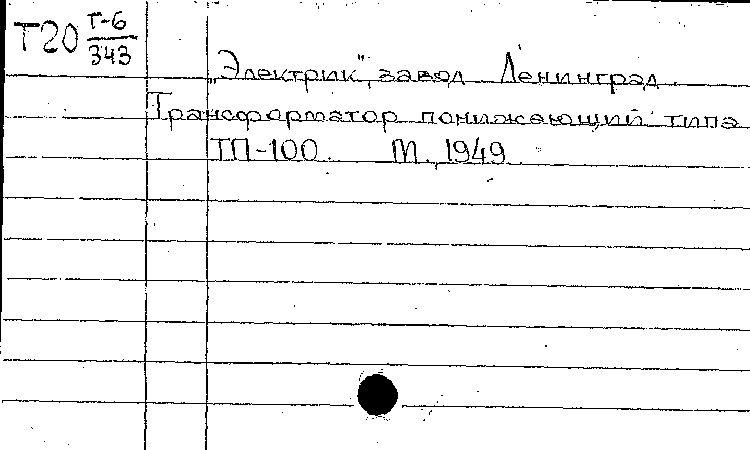 Т20 Т-6
343
„Электрик", завод Ленинград.
Трансформатор понижающий типа
ТП-100. М., 1949